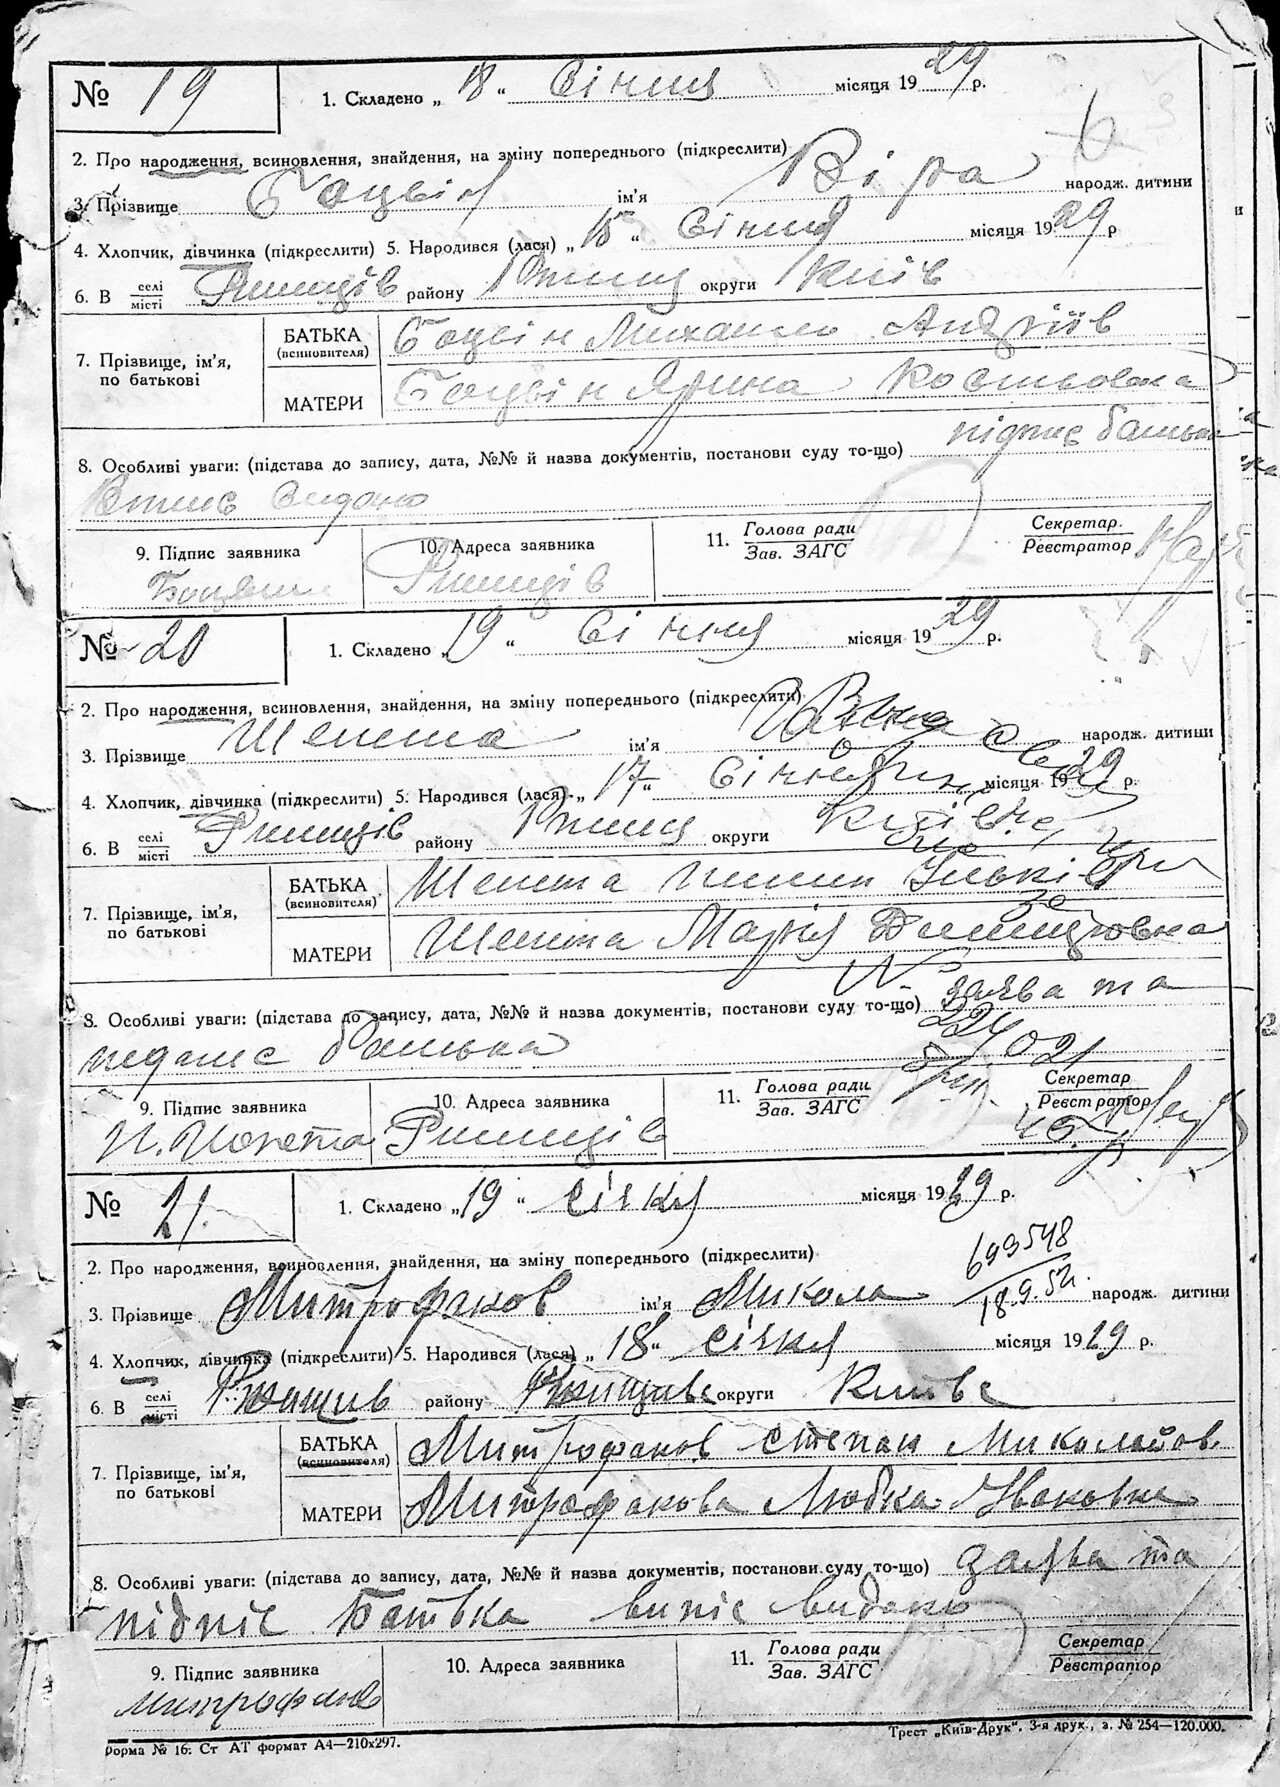 № 19
1. Складено „ 18 “ Січня місяця 1929 р.
2. Про народження, всиновлення, знайдення, на зміну попереднього (підкреслити)
3. Прізвище Боцвін ім'я Віра народж. дитини
4. Хлопчик, дівчинка (підкреслити) 5. Народився (лася) „ 15 “ Січня місяця 1929 р
6. В селі/місті Ржищів району Ржищ округи Київ
7. Прізвище, ім'я, по батькові
БАТЬКА (всиновителя) Боцвін Михайло Андріїв
МАТЕРИ Боцвін Ярина Костьовна
8. Особливі уваги: (підстава до запису, дата, №№ й назва документів, постанови суду то-що) підпис батька
Випис видано
9. Підпис заявника
10. Адреса заявника Ржищів
11. Голова ради / Зав. ЗАГС
Секретар. / Реєстратор
№ 20
1. Складено „ 19 “ Січня місяця 1929 р.
2. Про народження, всиновлення, знайдення, на зміну попереднього (підкреслити)
3. Прізвище Шепета ім'я народж. дитини
4. Хлопчик, дівчинка (підкреслити) 5. Народився (лася) „ 17 “ Січня місяця 1929 р.
6. В селі/місті Ржищів району Ржищ округи Київ
7. Прізвище, ім'я, по батькові
БАТЬКА (всиновителя) Шепета Пилип Ільків
МАТЕРИ Шепета Марія
8. Особливі уваги: (підстава до запису, дата, №№ й назва документів, постанови суду то-що) заява та
підпис батька
9. Підпис заявника
10. Адреса заявника Ржищів
11. Голова ради / Зав. ЗАГС
Секретар / Реєстратор
№ 21.
1. Складено „ 19 “ січня місяця 1929 р.
2. Про народження, всиновлення, знайдення, на зміну попереднього (підкреслити)
693548
18.9.52.
3. Прізвище Митрофанов ім'я Микола народж. дитини
4. Хлопчик, дівчинка (підкреслити) 5. Народився (лася) „ 18 “ січня місяця 1929 р.
6. В селі/місті Ржищив району Ржищивс округи Київс
7. Прізвище, ім'я, по батькові
БАТЬКА (всиновителя) Митрофанов Степан Миколайов.
МАТЕРИ Митрофанова Любка Івановна
8. Особливі уваги: (підстава до запису, дата, №№ й назва документів, постанови суду то-що) заява та
підпіс Батька випіс видано
9. Підпис заявника Митрофанов
10. Адреса заявника
11. Голова ради / Зав. ЗАГС
Секретар / Реєстратор
Форма № 16: Ст АТ формат А4—210х297.
Трест „Київ-Друк“. 3-я друк., з. № 254—120.000.